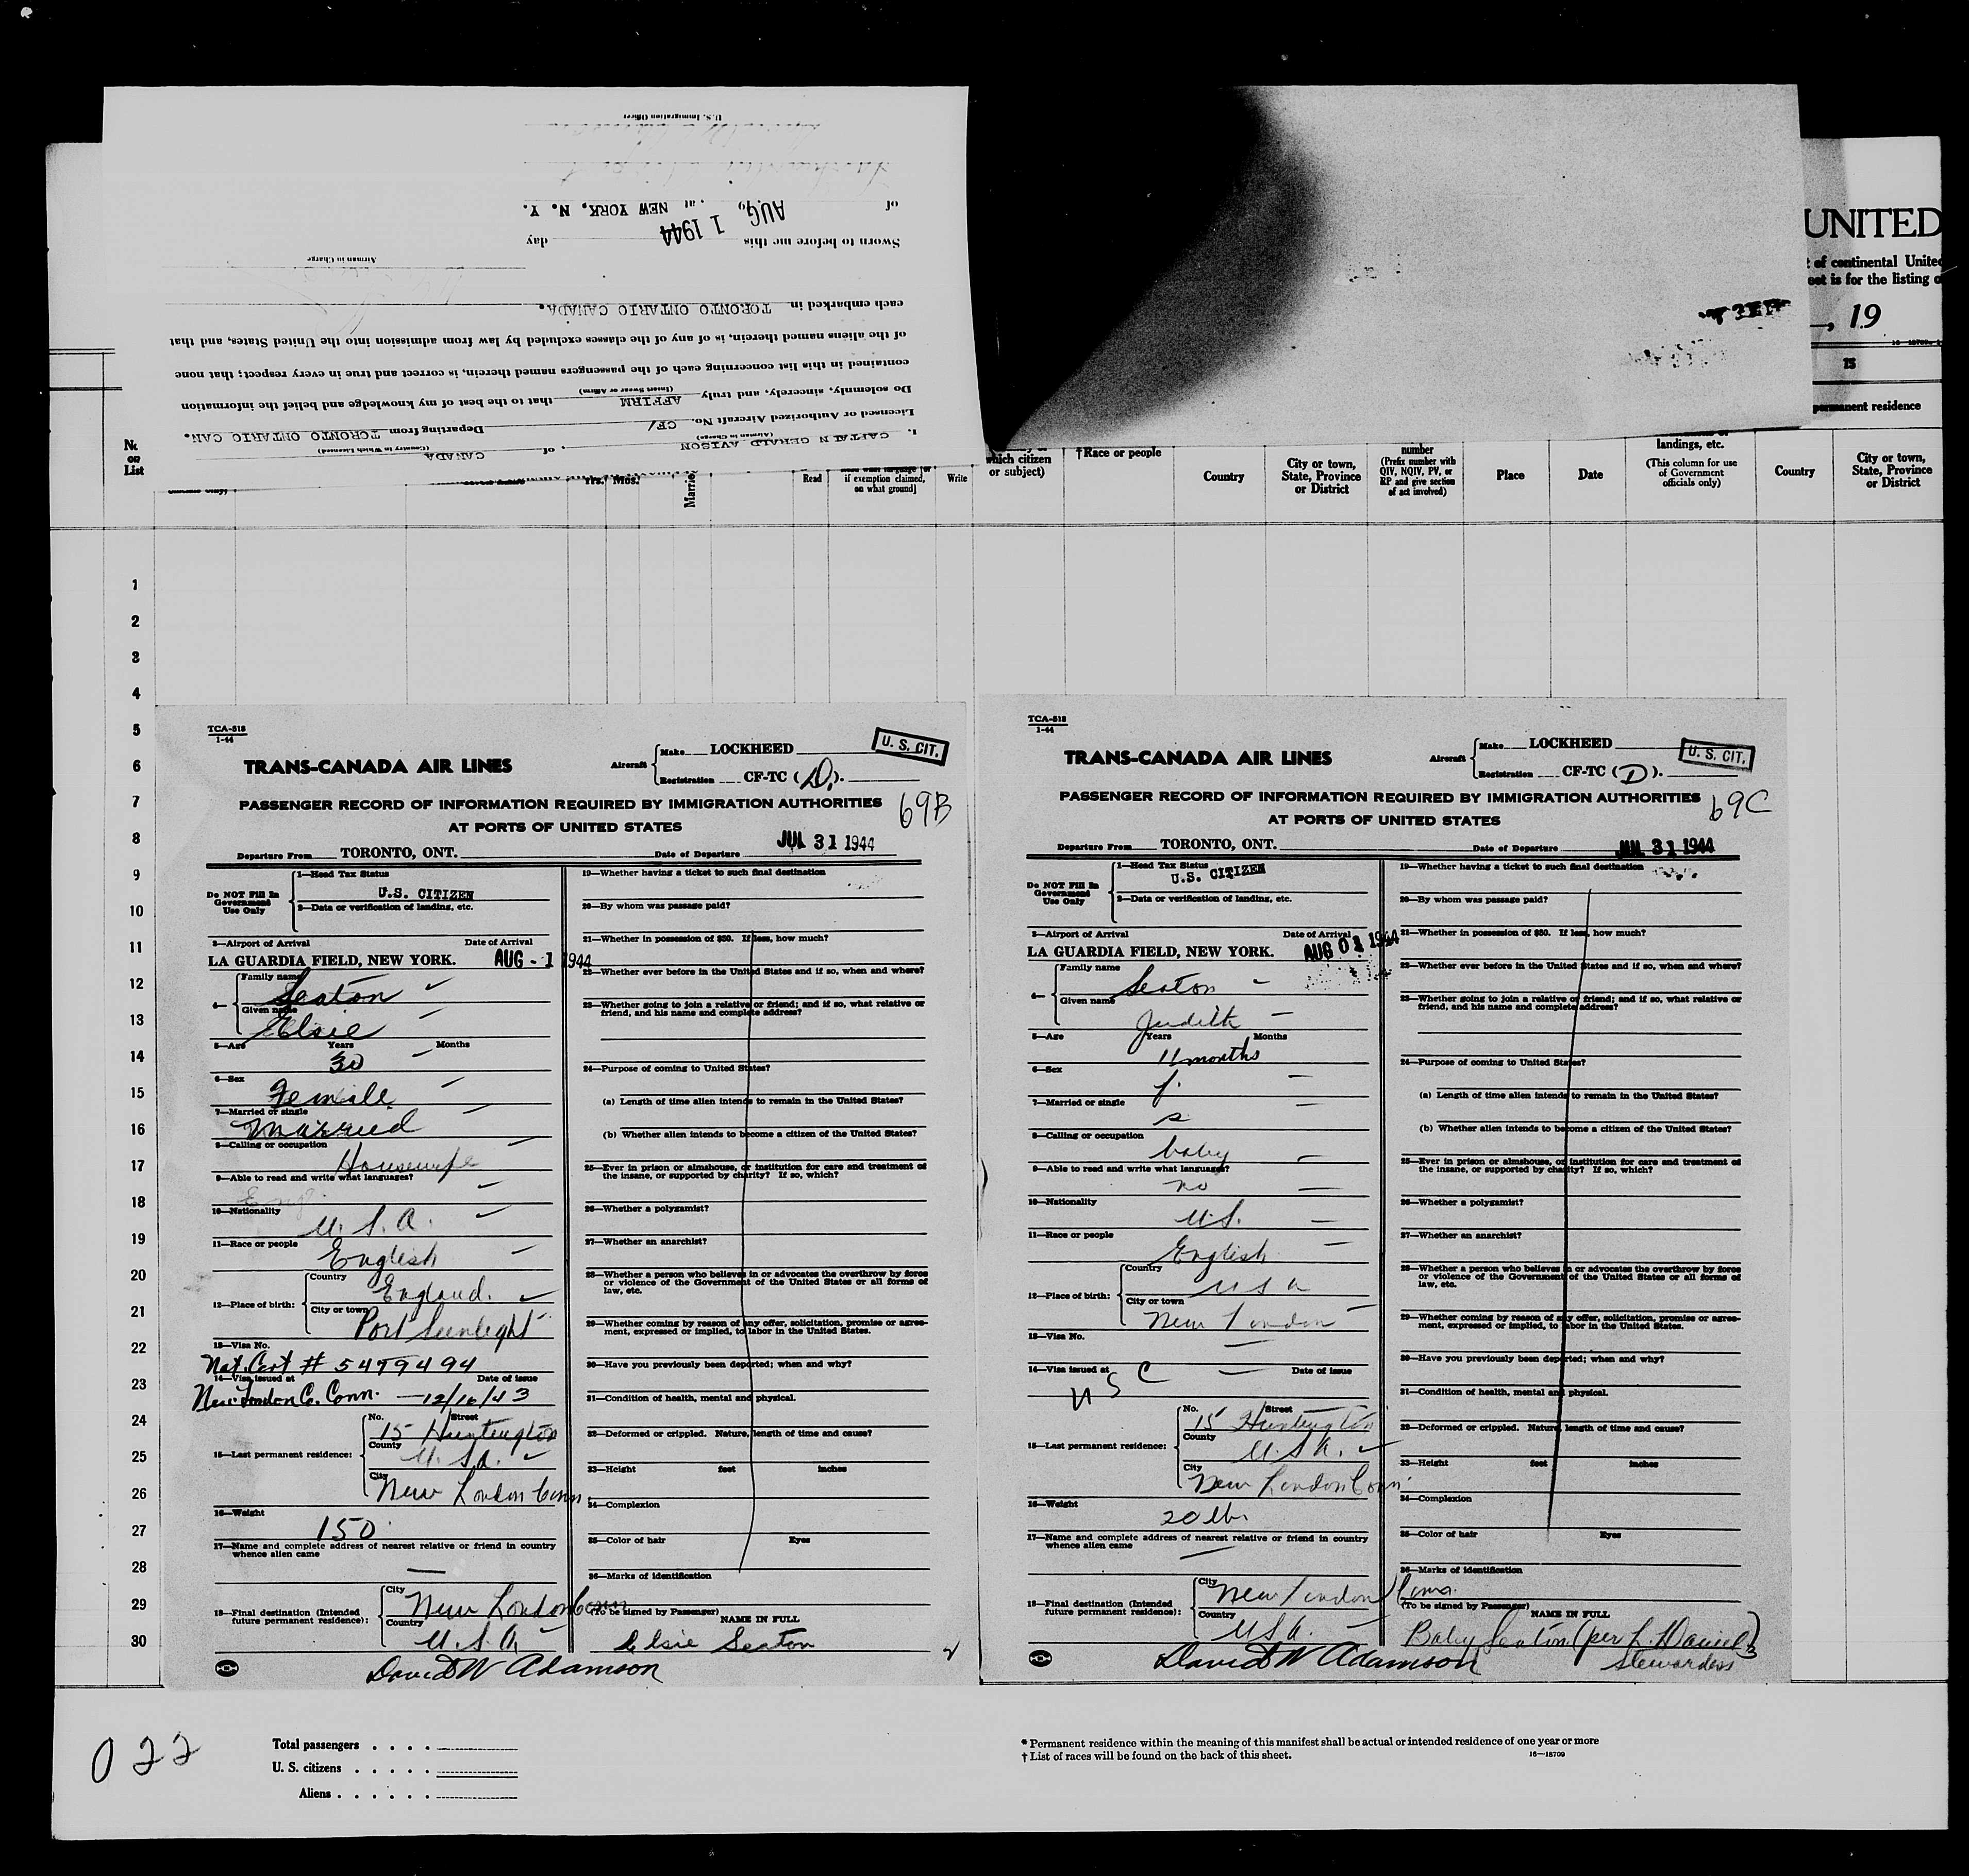 U.S. Immigration Officer
of AUG, at NEW YORK, N. Y.
Sworn to before me this 1 1944 day
Airman in Charge
each embarked in TORONTO ONTARIO CANADA.
of the aliens named therein, is of any of the classes excluded by law from admission into the United States, and that
contained in this list concerning each of the passengers named therein, is correct and true in every respect; that none
(Insert Swear or Affirm)
Do solemnly, sincerely, and truly AFFIRM that to the best of my knowledge and belief the information
Licensed or Authorized Aircraft No. CF/ Departing from TORONTO ONTARIO CAN.
(Airman in Charge) (Country in Which Licensed)
I, CAPTAIN GERALD AVISON of CANADA
UNITED
of continental United
is for the listing
, 19
15
permanent residence
No.
on
List
Yrs. Mos.
Married
Read
if exemption claimed,
on what ground]
Write
which citizen
or subject)
†Race or people
Country
City or town,
State, Province
or District
number
(Prefix number with
QIV, NQIV, PV, or
RP and give section
of act involved)
Place
Date
landings, etc.
(This column for use
of Government
officials only)
Country
City or town,
State, Province
or District
1
2
3
4
5
6
7
8
9
10
11
12
13
14
15
16
17
18
19
20
21
22
23
24
25
26
27
28
29
30
TCA-518
1-44
TRANS-CANADA AIR LINES
Aircraft
Make LOCKHEED
Registration CF-TC (D).
U. S. CIT.
PASSENGER RECORD OF INFORMATION REQUIRED BY IMMIGRATION AUTHORITIES
AT PORTS OF UNITED STATES
69B
Departure From TORONTO, ONT. Date of Departure JUL 31 1944
Do NOT Fill In
Government
Use Only
1—Head Tax Status
U.S. CITIZEN
2—Data or verification of landing, etc.
3—Airport of Arrival Date of Arrival
LA GUARDIA FIELD, NEW YORK. AUG - 1 1944
4—
Family name Seaton
Given name Elsie
5—Age Years Months
30
6—Sex
Female
7—Married or single
Married
8—Calling or occupation
Housewife
9—Able to read and write what languages?
Eng.
10—Nationality
U. S. A.
11—Race or people
English
12—Place of birth:
Country
England.
City or town
Port Sunlight
13—Visa No.
Nat. Cert # 5479494
14—Visa issued at Date of issue
New London C. Conn. — 12/16/43
15—Last permanent residence:
No. Street
15 Huntington
County
U. S. A.
City
New London Conn.
16—Weight
150
17—Name and complete address of nearest relative or friend in country
whence alien came
18—Final destination (Intended
future permanent residence):
City
New London Conn
Country
U. S. A.
David W Adamson
19—Whether having a ticket to such final destination
20—By whom was passage paid?
21—Whether in possession of $50. If less, how much?
22—Whether ever before in the United States and if so, when and where?
23—Whether going to join a relative or friend; and if so, what relative or
friend, and his name and complete address?
24—Purpose of coming to United States?
(a) Length of time alien intends to remain in the United States?
(b) Whether alien intends to become a citizen of the United States?
25—Ever in prison or almshouse, or institution for care and treatment of
the insane, or supported by charity? If so, which?
26—Whether a polygamist?
27—Whether an anarchist?
28—Whether a person who believes in or advocates the overthrow by force
or violence of the Government of the United States or all forms of
law, etc.
29—Whether coming by reason of any offer, solicitation, promise or agree-
ment, expressed or implied, to labor in the United States.
30—Have you previously been deported; when and why?
31—Condition of health, mental and physical.
32—Deformed or crippled. Nature, length of time and cause?
33—Height feet inches
34—Complexion
35—Color of hair Eyes
36—Marks of identification
(To be signed by Passenger)
NAME IN FULL
Elsie Seaton
TCA-518
1-44
TRANS-CANADA AIR LINES
Aircraft
Make LOCKHEED
Registration CF-TC (D).
U. S. CIT.
PASSENGER RECORD OF INFORMATION REQUIRED BY IMMIGRATION AUTHORITIES
AT PORTS OF UNITED STATES
69C
Departure From TORONTO, ONT. Date of Departure JUL 31 1944
Do NOT Fill In
Government
Use Only
1—Head Tax Status
U.S. CITIZEN
2—Data or verification of landing, etc.
3—Airport of Arrival Date of Arrival
LA GUARDIA FIELD, NEW YORK. AUG 01 1944
4—
Family name Seaton
Given name
Judith
5—Age Years Months
11 months
6—Sex
f.
7—Married or single
s
8—Calling or occupation
baby
9—Able to read and write what languages?
no
10—Nationality
U.S.
11—Race or people
English
12—Place of birth:
Country
USA
City or town
New London
13—Visa No.
14—Visa issued at Date of issue
U S C
15—Last permanent residence:
No. Street
15 Huntington
County
U. S A.
City
New London Conn.
16—Weight
20 lb.
17—Name and complete address of nearest relative or friend in country
whence alien came
18—Final destination (Intended
future permanent residence):
City
New London Conn.
Country
USA.
David W Adamson
19—Whether having a ticket to such final destination
20—By whom was passage paid?
21—Whether in possession of $50. If less, how much?
22—Whether ever before in the United States and if so, when and where?
23—Whether going to join a relative or friend; and if so, what relative or
friend, and his name and complete address?
24—Purpose of coming to United States?
(a) Length of time alien intends to remain in the United States?
(b) Whether alien intends to become a citizen of the United States?
25—Ever in prison or almshouse, or institution for care and treatment of
the insane, or supported by charity? If so, which?
26—Whether a polygamist?
27—Whether an anarchist?
28—Whether a person who believes in or advocates the overthrow by force
or violence of the Government of the United States or all forms of
law, etc.
29—Whether coming by reason of any offer, solicitation, promise or agree-
ment, expressed or implied, to labor in the United States.
30—Have you previously been deported; when and why?
31—Condition of health, mental and physical.
32—Deformed or crippled. Nature, length of time and cause?
33—Height feet inches
34—Complexion
35—Color of hair Eyes
36—Marks of identification
(To be signed by Passenger)
NAME IN FULL
Baby Seaton (per L. Daniels)
Stewardess
022
Total passengers . . . .
U. S. citizens . . . . .
Aliens . . . . . .
* Permanent residence within the meaning of this manifest shall be actual or intended residence of one year or more
† List of races will be found on the back of this sheet. 16—18709